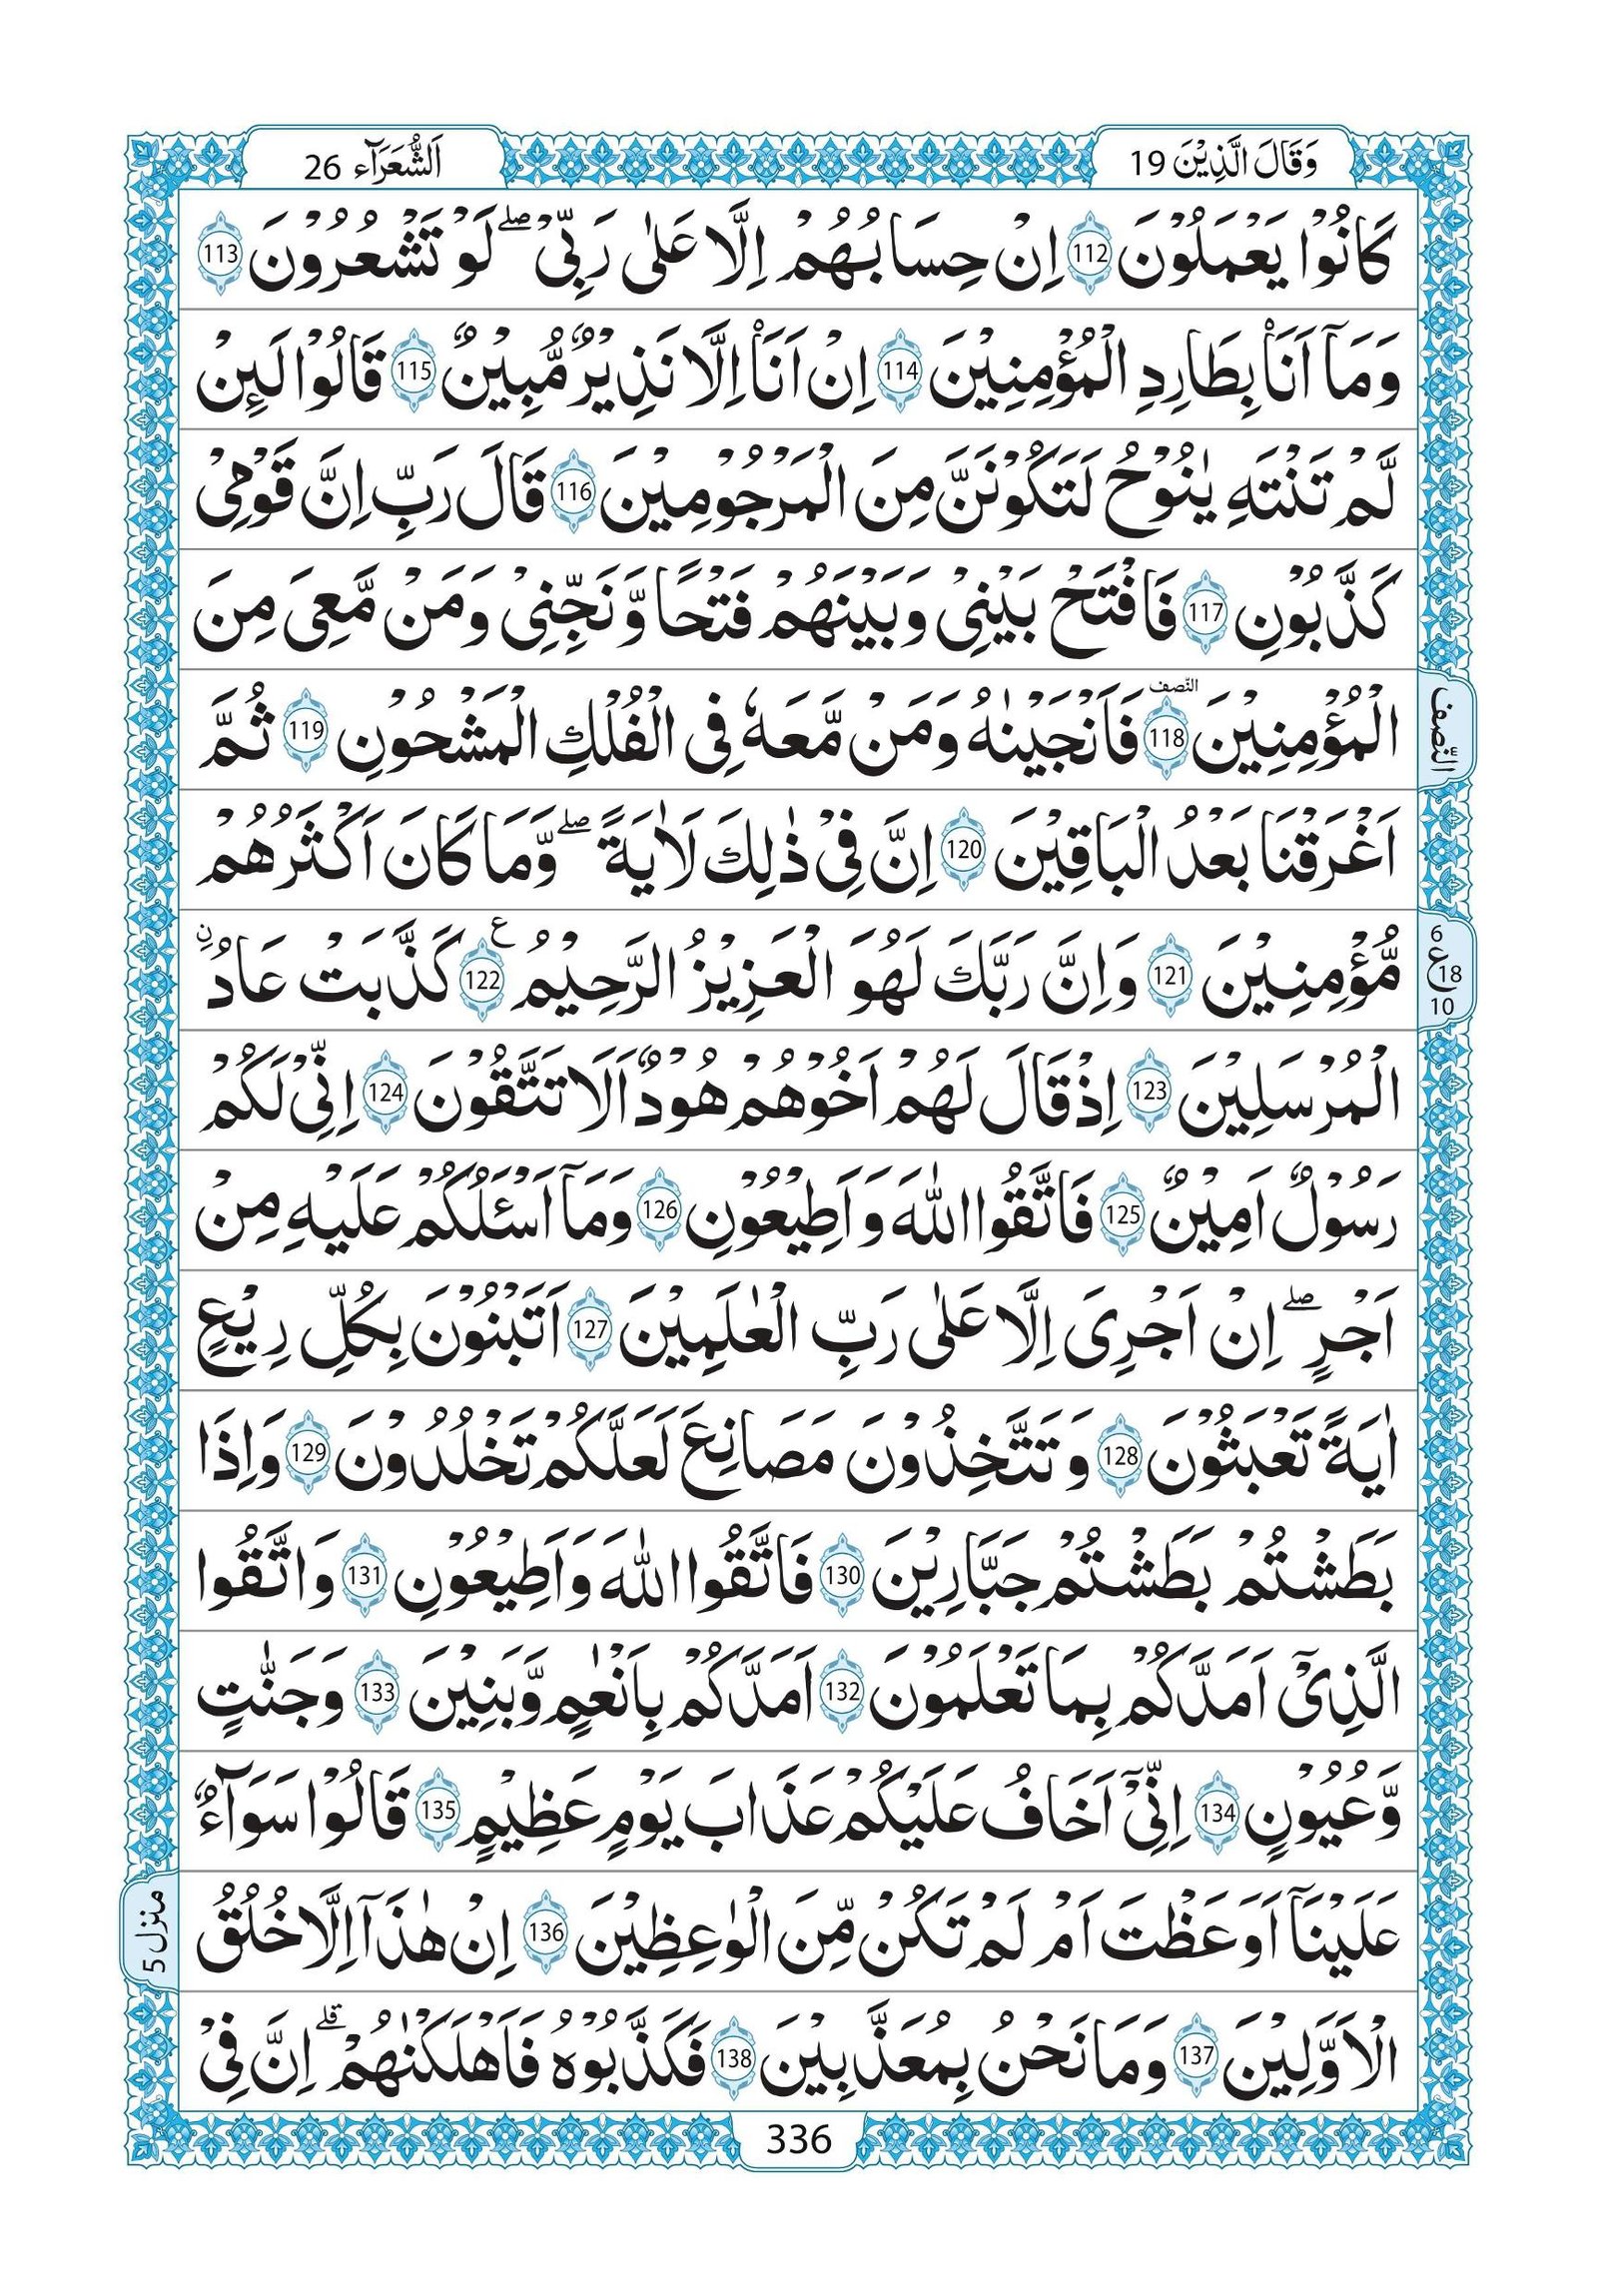 وَقَالَ الَّذِيْنَ 19
اَلشُّعَرَآء 26
كَانُوْا يَعْمَلُوْنَ 112 اِنْ حِسَابُهُمْ اِلَّا عَلٰى رَبِّىْ ۖ لَوْ تَشْعُرُوْنَ 113
وَمَآ اَنَا۠ بِطَارِدِ الْمُؤْمِنِيْنَ 114 اِنْ اَنَا۠ اِلَّا نَذِيْرٌ مُّبِيْنٌ 115 قَالُوْا لَىِٕنْ
لَّمْ تَنْتَهِ يٰنُوْحُ لَتَكُوْنَنَّ مِنَ الْمَرْجُوْمِيْنَ 116 قَالَ رَبِّ اِنَّ قَوْمِىْ
كَذَّبُوْنِ 117 فَافْتَحْ بَيْنِىْ وَبَيْنَهُمْ فَتْحًا وَّنَجِّنِىْ وَمَنْ مَّعِىَ مِنَ
الْمُؤْمِنِيْنَ 118 النّصف فَاَنْجَيْنٰهُ وَمَنْ مَّعَهٗ فِى الْفُلْكِ الْمَشْحُوْنِ 119 ثُمَّ
النّصف
اَغْرَقْنَا بَعْدُ الْبَاقِيْنَ 120 اِنَّ فِىْ ذٰلِكَ لَاٰيَةً ۖ وَّمَا كَانَ اَكْثَرُهُمْ
مُّؤْمِنِيْنَ 121 وَاِنَّ رَبَّكَ لَهُوَ الْعَزِيْزُ الرَّحِيْمُ 122 ع كَذَّبَتْ عَادُ ۨ
6
ع 18
10
الْمُرْسَلِيْنَ 123 اِذْ قَالَ لَهُمْ اَخُوْهُمْ هُوْدٌ اَلَا تَتَّقُوْنَ 124 اِنِّىْ لَكُمْ
رَسُوْلٌ اَمِيْنٌ 125 فَاتَّقُوا اللّٰهَ وَاَطِيْعُوْنِ 126 وَمَآ اَسْـَٔلُكُمْ عَلَيْهِ مِنْ
اَجْرٍ ۖ اِنْ اَجْرِىَ اِلَّا عَلٰى رَبِّ الْعٰلَمِيْنَ 127 اَتَبْنُوْنَ بِكُلِّ رِيْعٍ
اٰيَةً تَعْبَثُوْنَ 128 وَتَتَّخِذُوْنَ مَصَانِعَ لَعَلَّكُمْ تَخْلُدُوْنَ 129 وَاِذَا
بَطَشْتُمْ بَطَشْتُمْ جَبَّارِيْنَ 130 فَاتَّقُوا اللّٰهَ وَاَطِيْعُوْنِ 131 وَاتَّقُوا
الَّذِىْٓ اَمَدَّكُمْ بِمَا تَعْلَمُوْنَ 132 اَمَدَّكُمْ بِاَنْعٰمٍ وَّبَنِيْنَ 133 وَجَنّٰتٍ
وَّعُيُوْنٍ 134 اِنِّىْٓ اَخَافُ عَلَيْكُمْ عَذَابَ يَوْمٍ عَظِيْمٍ 135 قَالُوْا سَوَآءٌ
عَلَيْنَآ اَوَعَظْتَ اَمْ لَمْ تَكُنْ مِّنَ الْوٰعِظِيْنَ 136 اِنْ هٰذَآ اِلَّا خُلُقُ
منزل 5
الْاَوَّلِيْنَ 137 وَمَا نَحْنُ بِمُعَذَّبِيْنَ 138 فَكَذَّبُوْهُ فَاَهْلَكْنٰهُمْ ۗ اِنَّ فِىْ
336